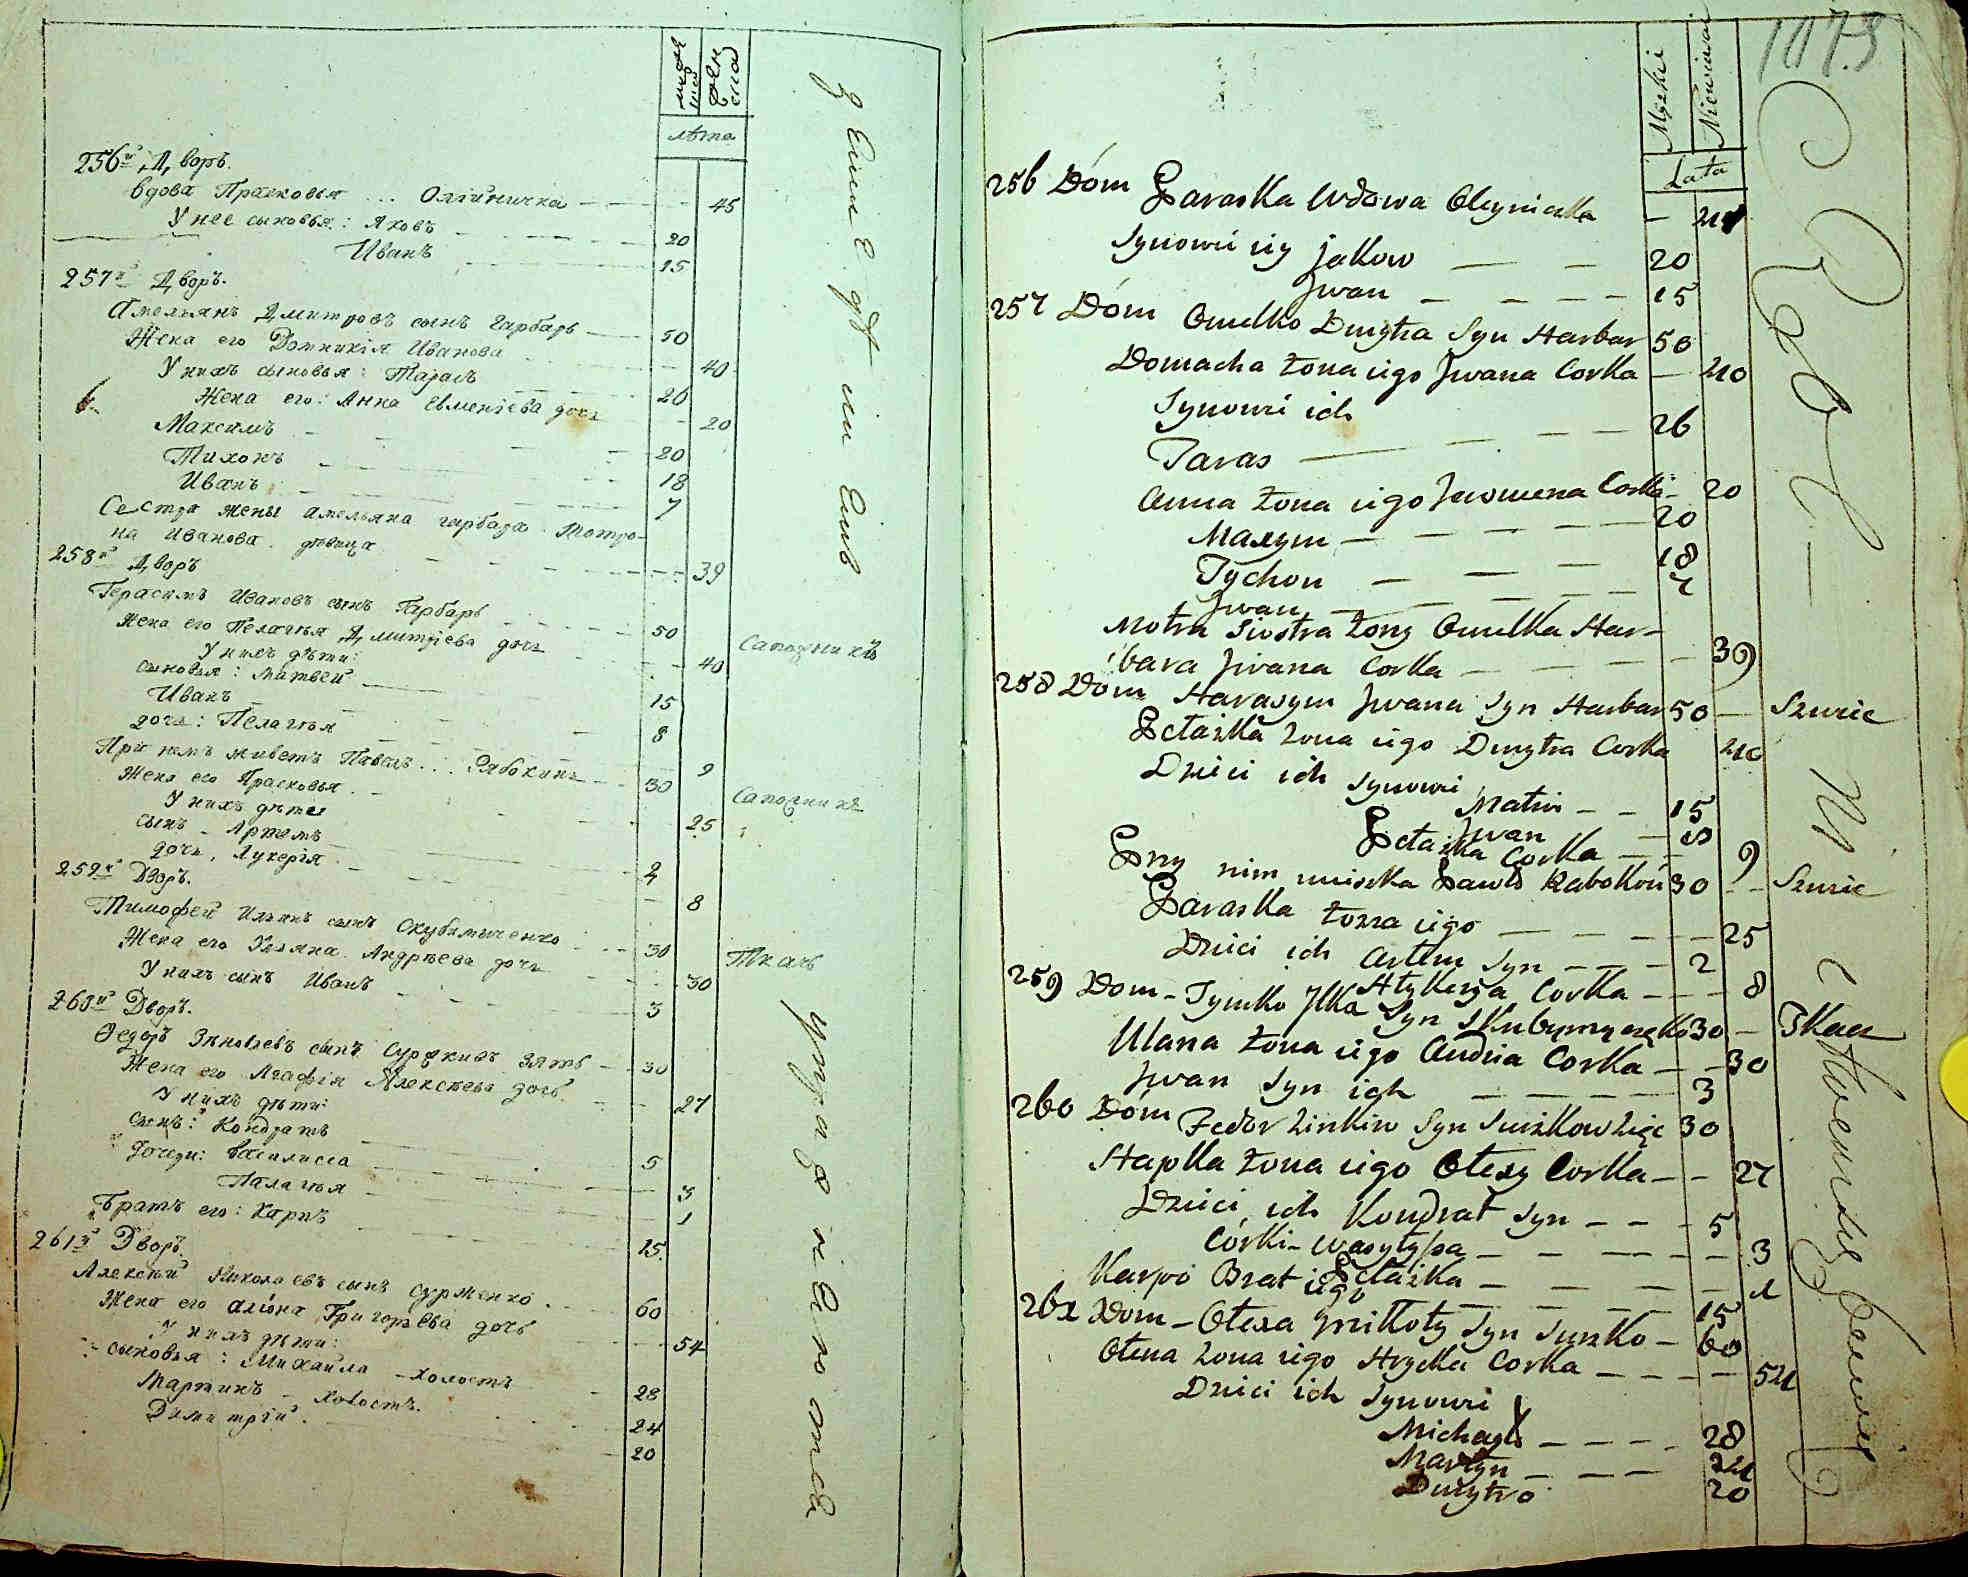 мужеска
женска
лѣта
256й Дворъ.
Вдова Прасковья ... Олѣйничка — 45
У нее сыновья: Яковъ — 20
Иванъ — 15
257й Дворъ.
Амельянъ Дмитровъ сынъ Гарбарь — 50
Жена его Домникія Иванова — 40
У нихъ сыновья: Тарасъ — 26
Жена его: Анна Евменіева дочь — 20
Максимъ — 20
Тихонъ — 18
Иванъ — 7
Сестра жены Амельяна Гарбара Мотро-
на Иванова дѣвица — 39
258й Дворъ
Герасимъ Ивановъ сынъ Гарбарь — 50 Сапожникъ
Жена его Пелагѣя Дмитріева дочь — 40
У нихъ дѣти:
сыновья: Матвей — 15
Иванъ — 8
дочь: Пелагѣя — 9
При немъ живетъ Павелъ ... Рябоконь — 30 Сапожникъ
Жена его Прасковья — 25
У нихъ дѣти
сынъ Артемъ — 2
дочь, Лукерія — 8
259й Дворъ.
Тимофей Ильинъ сынъ Скубимиченко — 30 Ткачъ
Жена его Ульяна Андрѣева дочь — 30
У нихъ сынъ Иванъ — 3
260й Дворъ.
Ѳедоръ Зѣновѣевъ сынъ зять — 30
Жена его Агафія Алексѣева дочь — 27
У нихъ дѣти:
сынъ: Кондратъ — 5
Дочери: Василисса — 3
Палагѣя — 1
Братъ его: Карпъ — 15
261й Дворъ.
Алексѣй Николаевъ сынъ Сурженко — 60
Жена его Алiона Григорѣева дочь — 54
У нихъ дѣти:
сыновья: Михайла — холостъ — 28
Мартинъ — холостъ — 24
Димитрій — 20
1073
Męzkie
Niewiescie
Lata
256 Dóm Paraska Wdowa Oleyniczka — 44
Synowie iey Jakow — — 20
Jwan — — — — 15
257 Dóm Omelko Dmytra Syn Harbar 50
Domacha żona iego Jwana Corka — 40
Synowie ich
Taras — — — — 26
Anna żona iego Jwomena Corka — 20
Maxym — — — — 20
Tychon — — — 18
Jwan — — — — 7
Motra Siostra żony Omelka Har-
bara Jwana Corka — — — — 39
258 Dóm Harasym Jwana Syn Harbar 50 — Szwiec
Pełażka żona iego Dmytra Corka 40
Dzieci ich Synowie
Matwi — — 15
Jwan — 8
Pełażka Corka — — 9
Przy nim mieszka Pawło Rabokoń 30 — Szwiec
Paraska żona iego — — — — 25
Dzieci ich Artem Syn — — — 2
Hłykerya Corka — — — 8
259 Dom — Tymko Jlka Syn Skubymyczęko 30 — Tkacz
Ulana żona iego Andria Corka — — 30
Jwan Syn ich — — — — 3
260 Dóm Fedor Zinkiw Syn Surżkow Zięć 30
Hapka żona iego Ołexy Corka — — 27
Dzieci ich Kondrat Syn — — — 5
Córki — Wasyłyssa — — — — 3
Pełażka — — — — — 1
Karpo Brat iego — — — — 15
261 Dom — Ołexa Mikoły Syn Surżko — 60
Ołena żona iego Hrycka Corka — — — — 54
Dzieci ich Synowie
Michayło — — — — 28
Martyn — — — 24
Dmytro 20